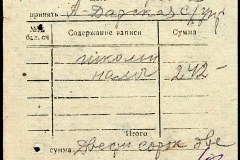 принять А-Дарская
№№ бал. сч. Содержание записи Сумма
школьн
налог 242-
Итого
сумма Двести сорок два